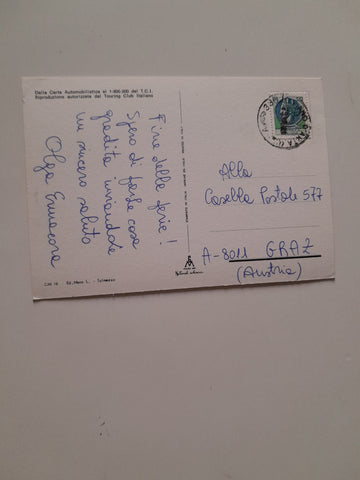 Dalla Carta Automobilistica al 1:800.000 del T.C.I.
Riproduzione autorizzata dal Touring Club Italiano
Fine delle ferie!
Spero di farle cosa
gradita inviandole
un sincero saluto
Olga
Alla
Casella Postale 577
A-8011 GRAZ
(Austria)